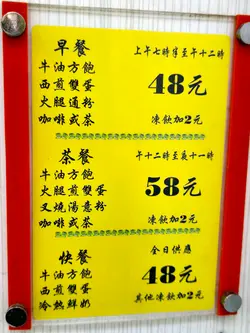 早餐
上午七時半至午十二時
牛油方飽
西煎雙蛋
火腿通粉
咖啡或茶
48元
凍飲加2元
茶餐
午十二時至夜十一時
牛油方飽
火腿雙蛋
叉燒湯意粉
咖啡或茶
58元
凍飲加2元
快餐
全日供應
牛油方飽
西煎雙蛋
冷熱鮮奶
48元
其他凍飲加2元